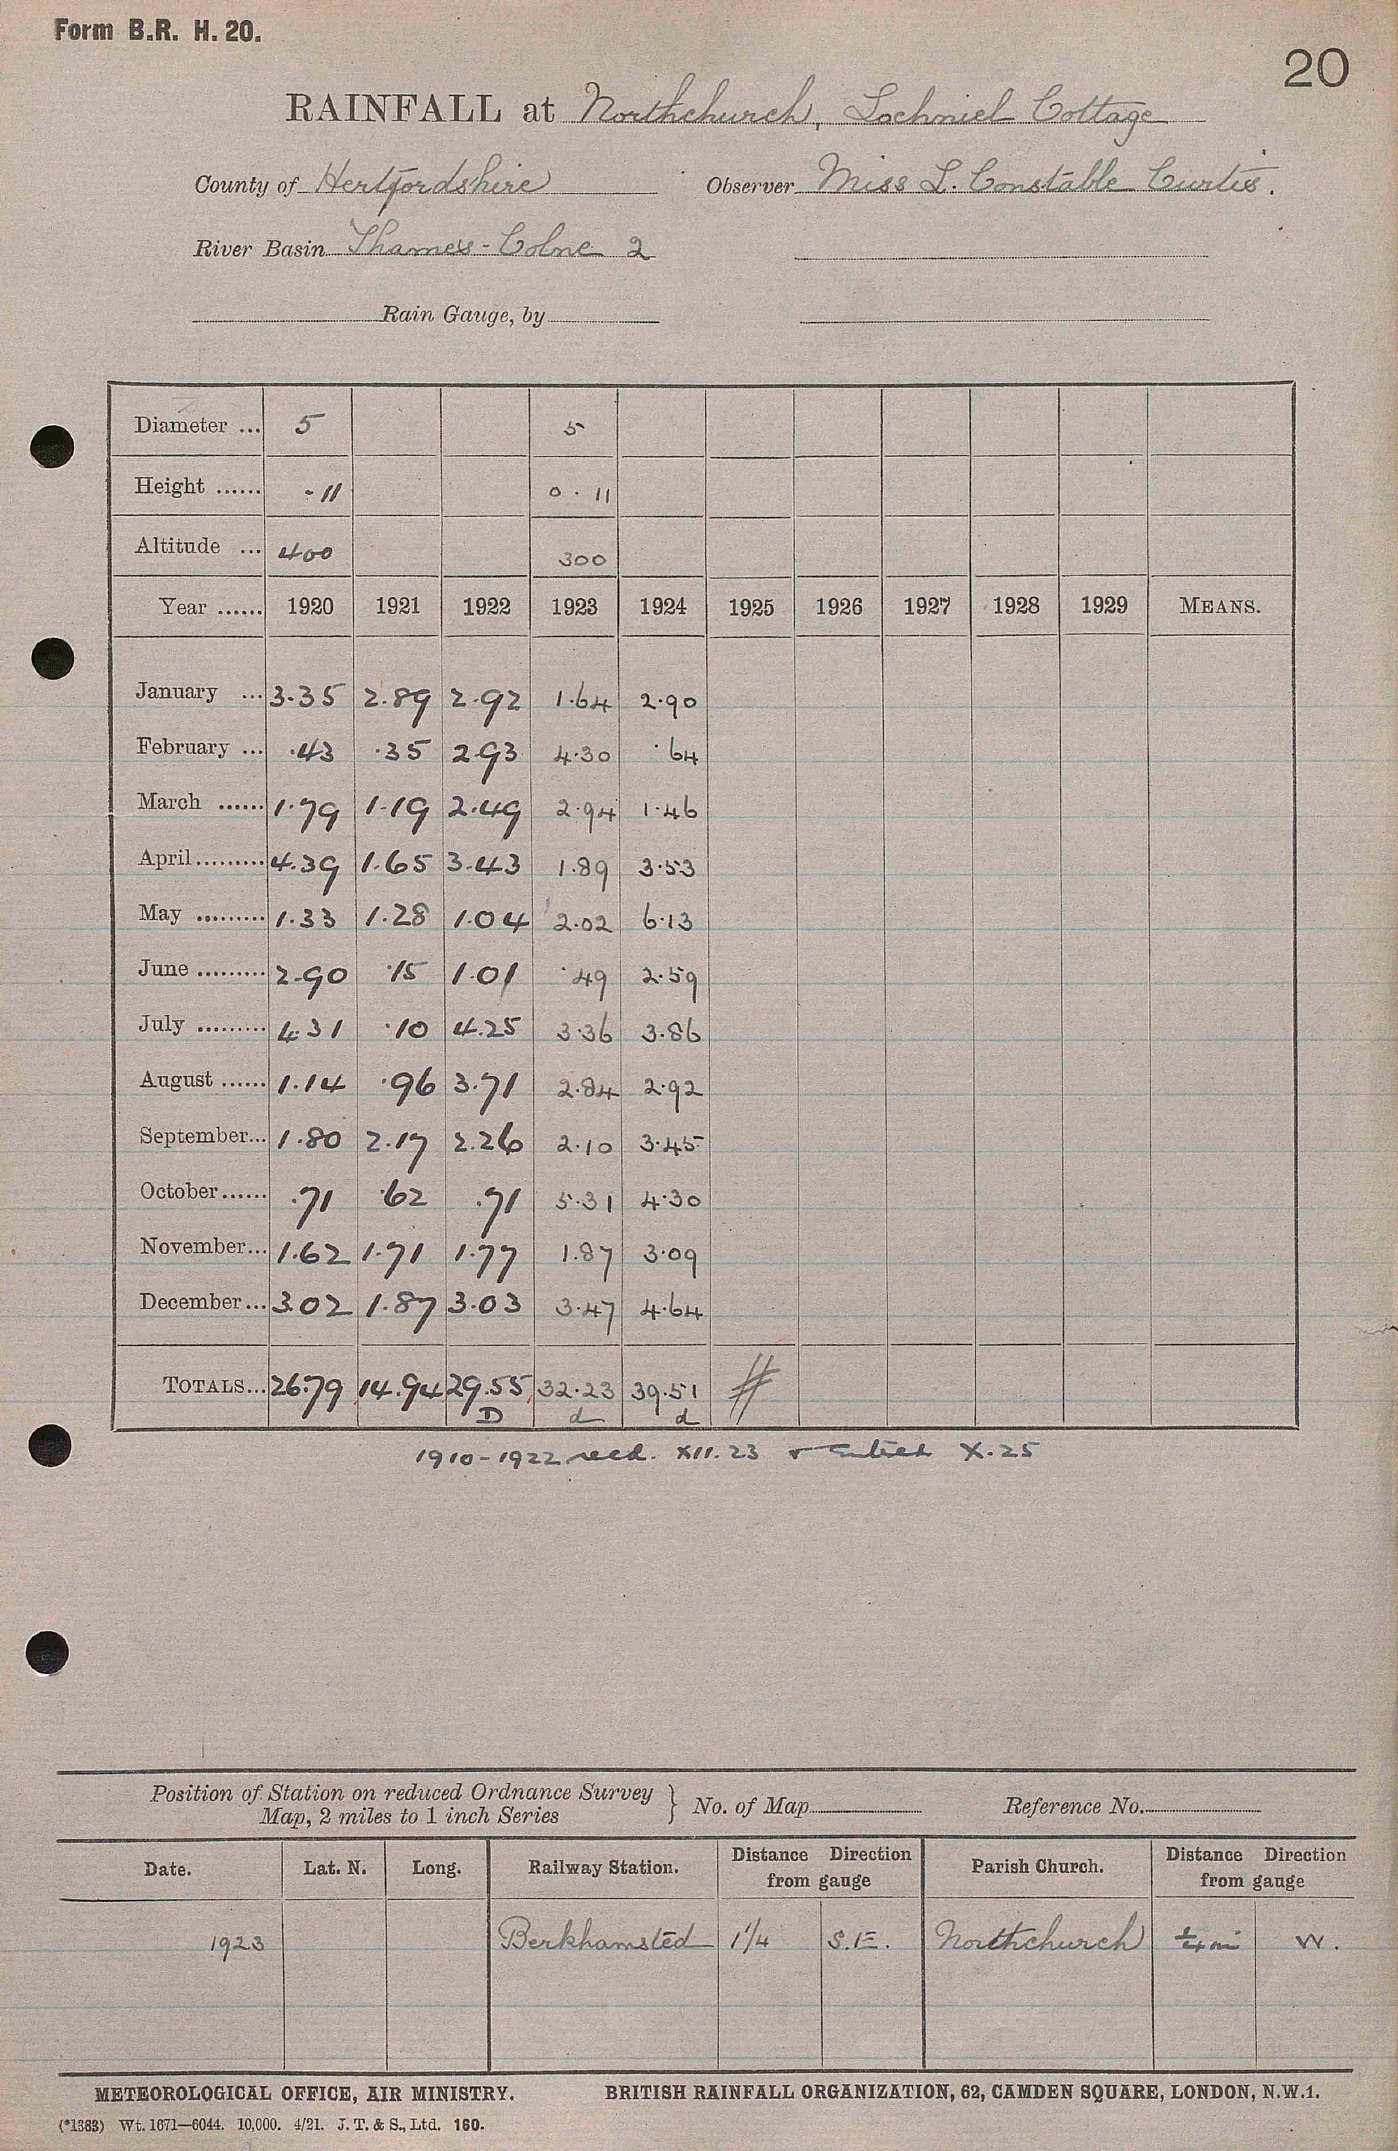 Form B.R. H. 20.
20
RAINFALL at Northchurch, Lochniel Cottage
County of Hertfordshire Observer Miss L. Constable Curtis.
River Basin Thames - Colne 2
Rain Gauge, by
Diameter ... 5 5
Height ...... .11 0.11
Altitude ... 400 300
Year ...... 1920 1921 1922 1923 1924 1925 1926 1927 1928 1929 MEANS.
January ... 3.35 2.89 2.92 1.64 2.90
February ... .43 .35 2.93 4.30 .64
March ...... 1.79 1.19 2.49 2.94 1.46
April ......... 4.39 1.65 3.43 1.89 3.53
May ......... 1.33 1.28 1.04 2.02 6.13
June ......... 2.90 .15 1.01 .49 2.59
July ......... 4.31 .10 4.25 3.36 3.86
August ...... 1.14 .96 3.71 2.84 2.92
September... 1.80 2.17 2.26 2.10 3.45
October ...... .71 .62 .71 5.31 4.30
November... 1.62 1.71 1.77 1.87 3.09
December ... 3.02 1.87 3.03 3.47 4.64
TOTALS... 26.79 14.94 29.55 32.23 39.51 #
D d d
1910-1922 recd. XII.23 + Entered X.25
Position of Station on reduced Ordnance Survey
Map, 2 miles to 1 inch Series } No. of Map Reference No.
Date. Lat. N. Long. Railway Station. Distance Direction from gauge Parish Church. Distance Direction from gauge
1923 Berkhamsted 1 1/4 S.E. Northchurch 1/4 mi W.
METEOROLOGICAL OFFICE, AIR MINISTRY. BRITISH RAINFALL ORGANIZATION, 62, CAMDEN SQUARE, LONDON, N.W.1.
(*1383) Wt. 1671—6044. 10,000. 4/21. J. T. & S., Ltd. 160.